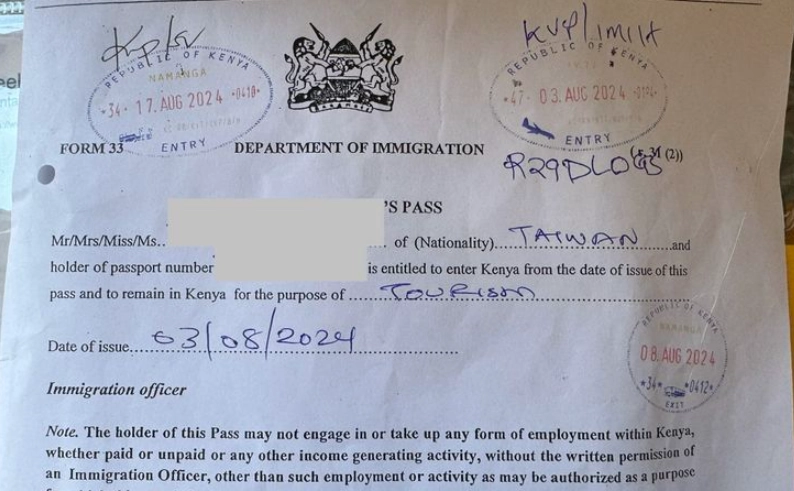 REPUBLIC OF KENYA
NAMANGA
*34* 17. AUG 2024 *0410*
ENTRY
KVP/1M1IX
REPUBLIC OF KENYA
*47* 03. AUG 2024
ENTRY
FORM 33
DEPARTMENT OF IMMIGRATION
(r. 31 (2))
R29DLOGS
'S PASS
Mr/Mrs/Miss/Ms.. of (Nationality)....TAIWAN....and
holder of passport number is entitled to enter Kenya from the date of issue of this
pass and to remain in Kenya for the purpose of ....TOURISM....
Date of issue....03/08/2024....
REPUBLIC OF KENYA
NAMANGA
08. AUG 2024
*34* *0412*
EXIT
Immigration officer
Note. The holder of this Pass may not engage in or take up any form of employment within Kenya,
whether paid or unpaid or any other income generating activity, without the written permission of
an Immigration Officer, other than such employment or activity as may be authorized as a purpose